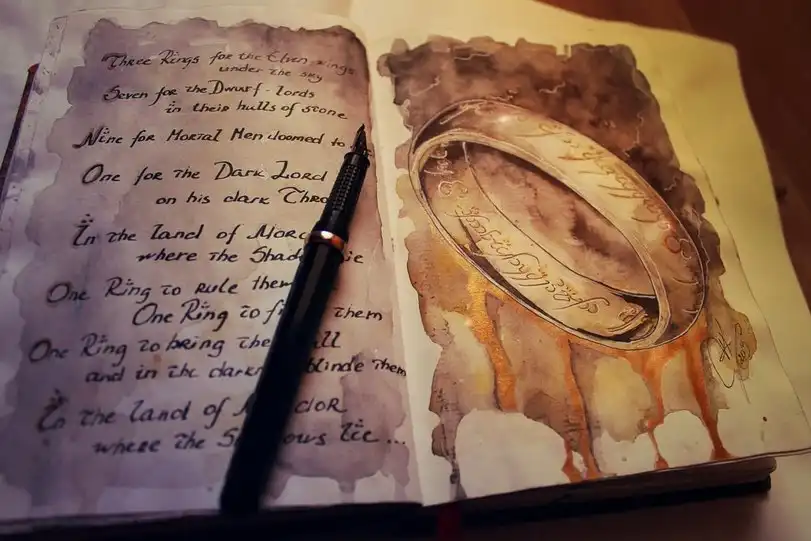 Three Rings for the Elven kings
under the sky
Seven for the Dwarf-lords
in their halls of stone
Nine for Mortal Men doomed to
One for the Dark Lord
on his dark Thro
In the land of Mor
where the Shad ie
One Ring to rule them
One Ring to fi them
One Ring to bring the all
and in the dark blinde them
In the land of M dor
where the S ows lie ...